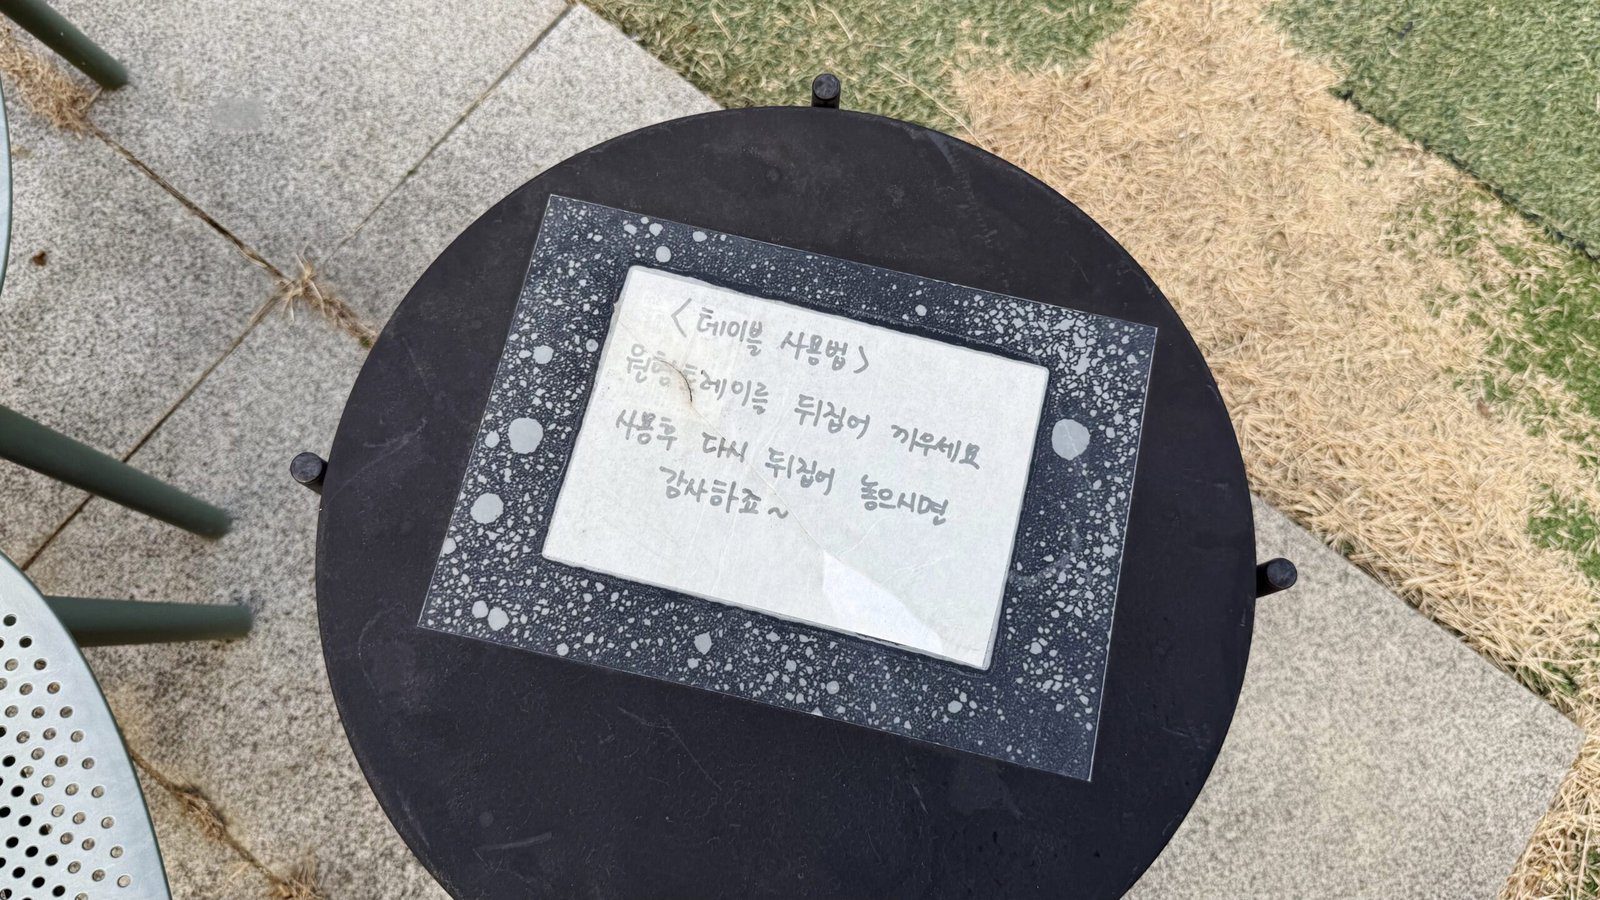 <테이블 사용법>
원형트레이를 뒤집어 끼우세요
사용후 다시 뒤집어 놓으시면
감사하죠~